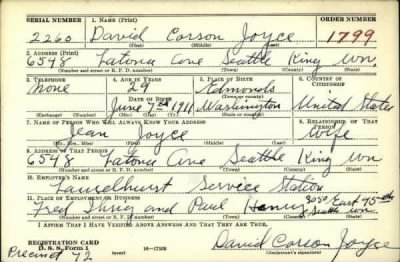 SERIAL NUMBER 1. NAME (Print) ORDER NUMBER
2260 David Corson Joyce 1799
(First) (Middle) (Last)
2. ADDRESS (Print)
6548 Latona Ave Seattle King Wn.
(Number and street or R. F. D. number) (Town) (County) (State)
3. TELEPHONE 4. AGE IN YEARS 5. PLACE OF BIRTH 6. COUNTRY OF CITIZENSHIP
None 29 Edmonds
DATE OF BIRTH (Town or county)
June 7 1911 Washington United States
(Exchange) (Number) (Mo.) (Day) (Yr.) (State or country)
7. NAME OF PERSON WHO WILL ALWAYS KNOW YOUR ADDRESS 8. RELATIONSHIP OF THAT PERSON
Jean Joyce wife
(Mr., Mrs., Miss) (First) (Middle) (Last)
9. ADDRESS OF THAT PERSON
6548 Latona Ave Seattle King Wn
(Number and street or R. F. D. number) (Town) (County) (State)
10. EMPLOYER'S NAME
Service Station
11. PLACE OF EMPLOYMENT OR BUSINESS
Fred and Paul Henry 3050 East 45th Seattle Wn.
(Number and street or R. F. D. number) (Town) (County) (State)
I AFFIRM THAT I HAVE VERIFIED ABOVE ANSWERS AND THAT THEY ARE TRUE.
David Corson Joyce
REGISTRATION CARD
D. S. S. Form 1 (over) (Registrant's signature)
Precinct 72